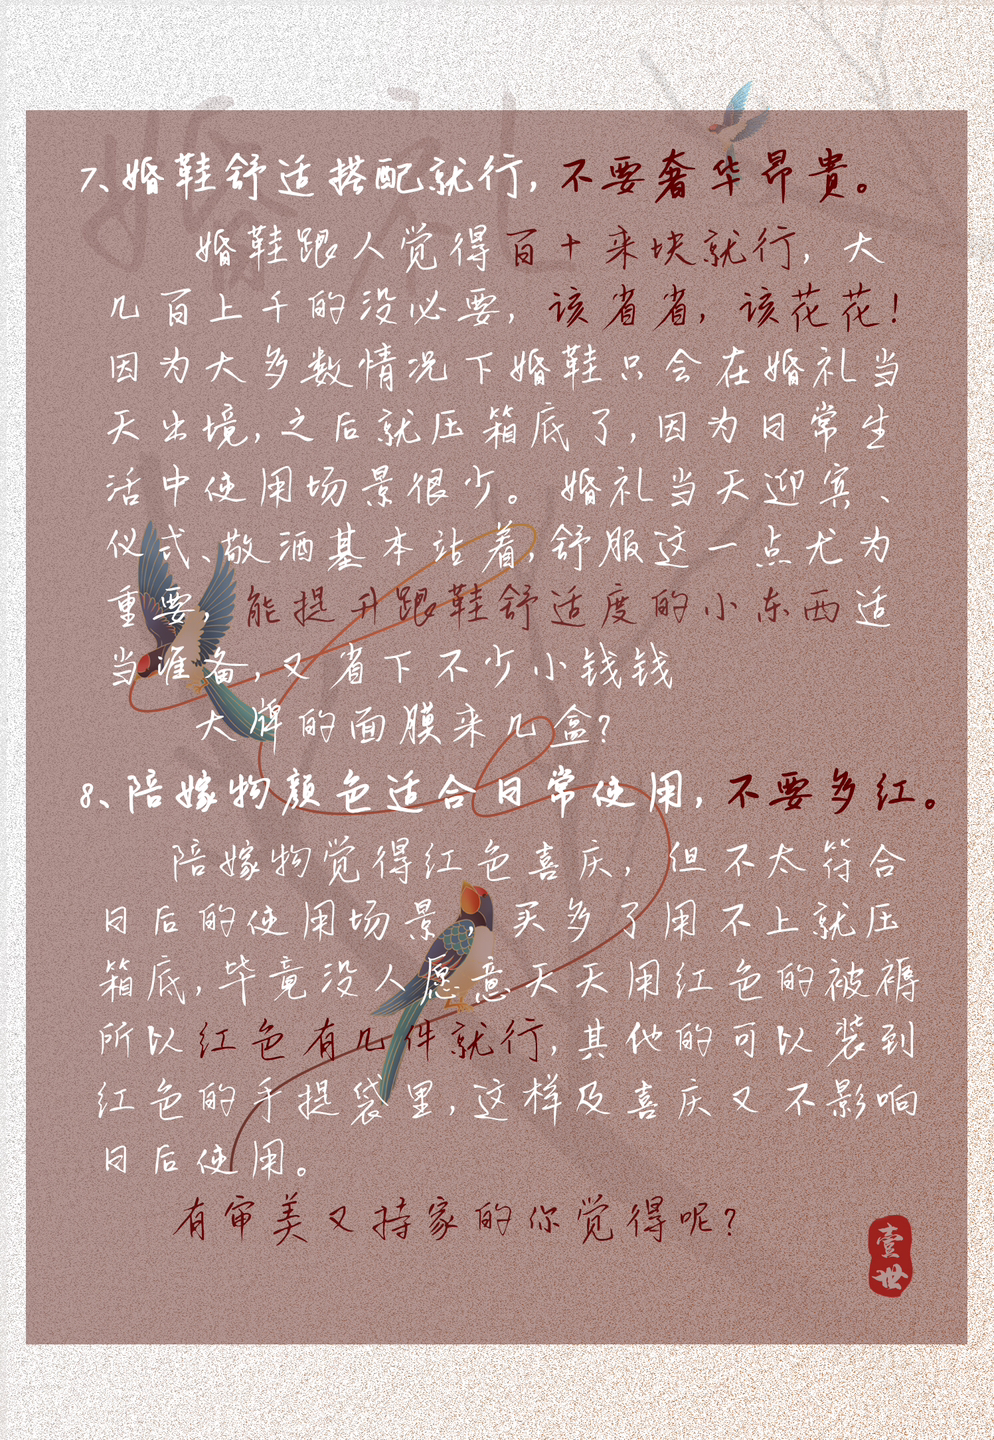 婚礼
7、婚鞋舒适搭配就行，不要奢华昂贵。
婚鞋跟人觉得百十来块就行，大
几百上千的没必要，该省省，该花花！
因为大多数情况下婚鞋只会在婚礼当
天出境，之后就压箱底了，因为日常生
活中使用场景很少。婚礼当天迎宾、
仪式、敬酒基本站着，舒服这一点尤为
重要，能提升跟鞋舒适度的小东西适
当准备，又省下不少小钱钱
大牌的面膜来几盒？
8、陪嫁物颜色适合日常使用，不要多红。
陪嫁物觉得红色喜庆，但不太符合
日后的使用场景，买多了用不上就压
箱底，毕竟没人愿意天天用红色的被褥
所以红色有几件就行，其他的可以装到
红色的手提袋里，这样及喜庆又不影响
日后使用。
有审美又持家的你觉得呢？
壹世